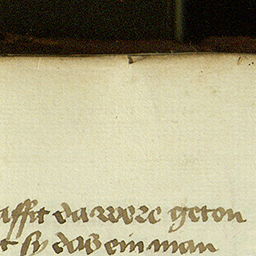 affit da were geton
t sy das ein man